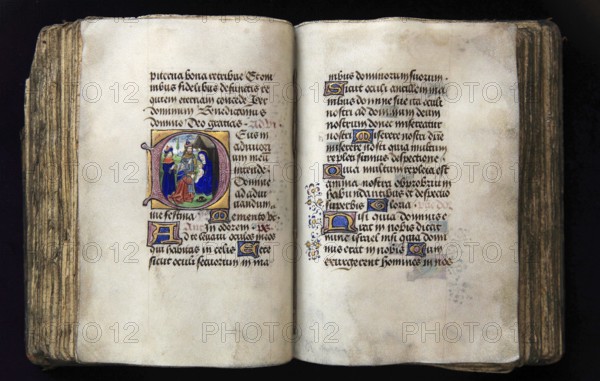 bona retribue Et om
nibus fidelibus defunctis re
quiem eternam concede Per
dominum Benedicamus
domino Deo gratias
Deus in
adiutori
um meu
intende
Domine
ad adiu
uandum
me festina Memento be
In odorem ps
Ad te leuaui oculos meos
qui habitas in celis Ecce
sicut oculi seruorum in ma
nibus dominorum suorum
Sicut oculi ancille in ma
nibus domine sue ita oculi
nostri ad dominum deum
nostrum donec misereatur
nostri Miserere nostri dne
miserere nostri quia multum
repleti sumus despectione
Quia multum repleta est
anima nostra obprobrium
habundantibus et despectio
superbis Gloria
Nisi quia dominus e
rat in nobis dicat
nunc israel nisi quia domi
nus erat in nobis Cum
exurgerent homines in nos
PHOTO 12